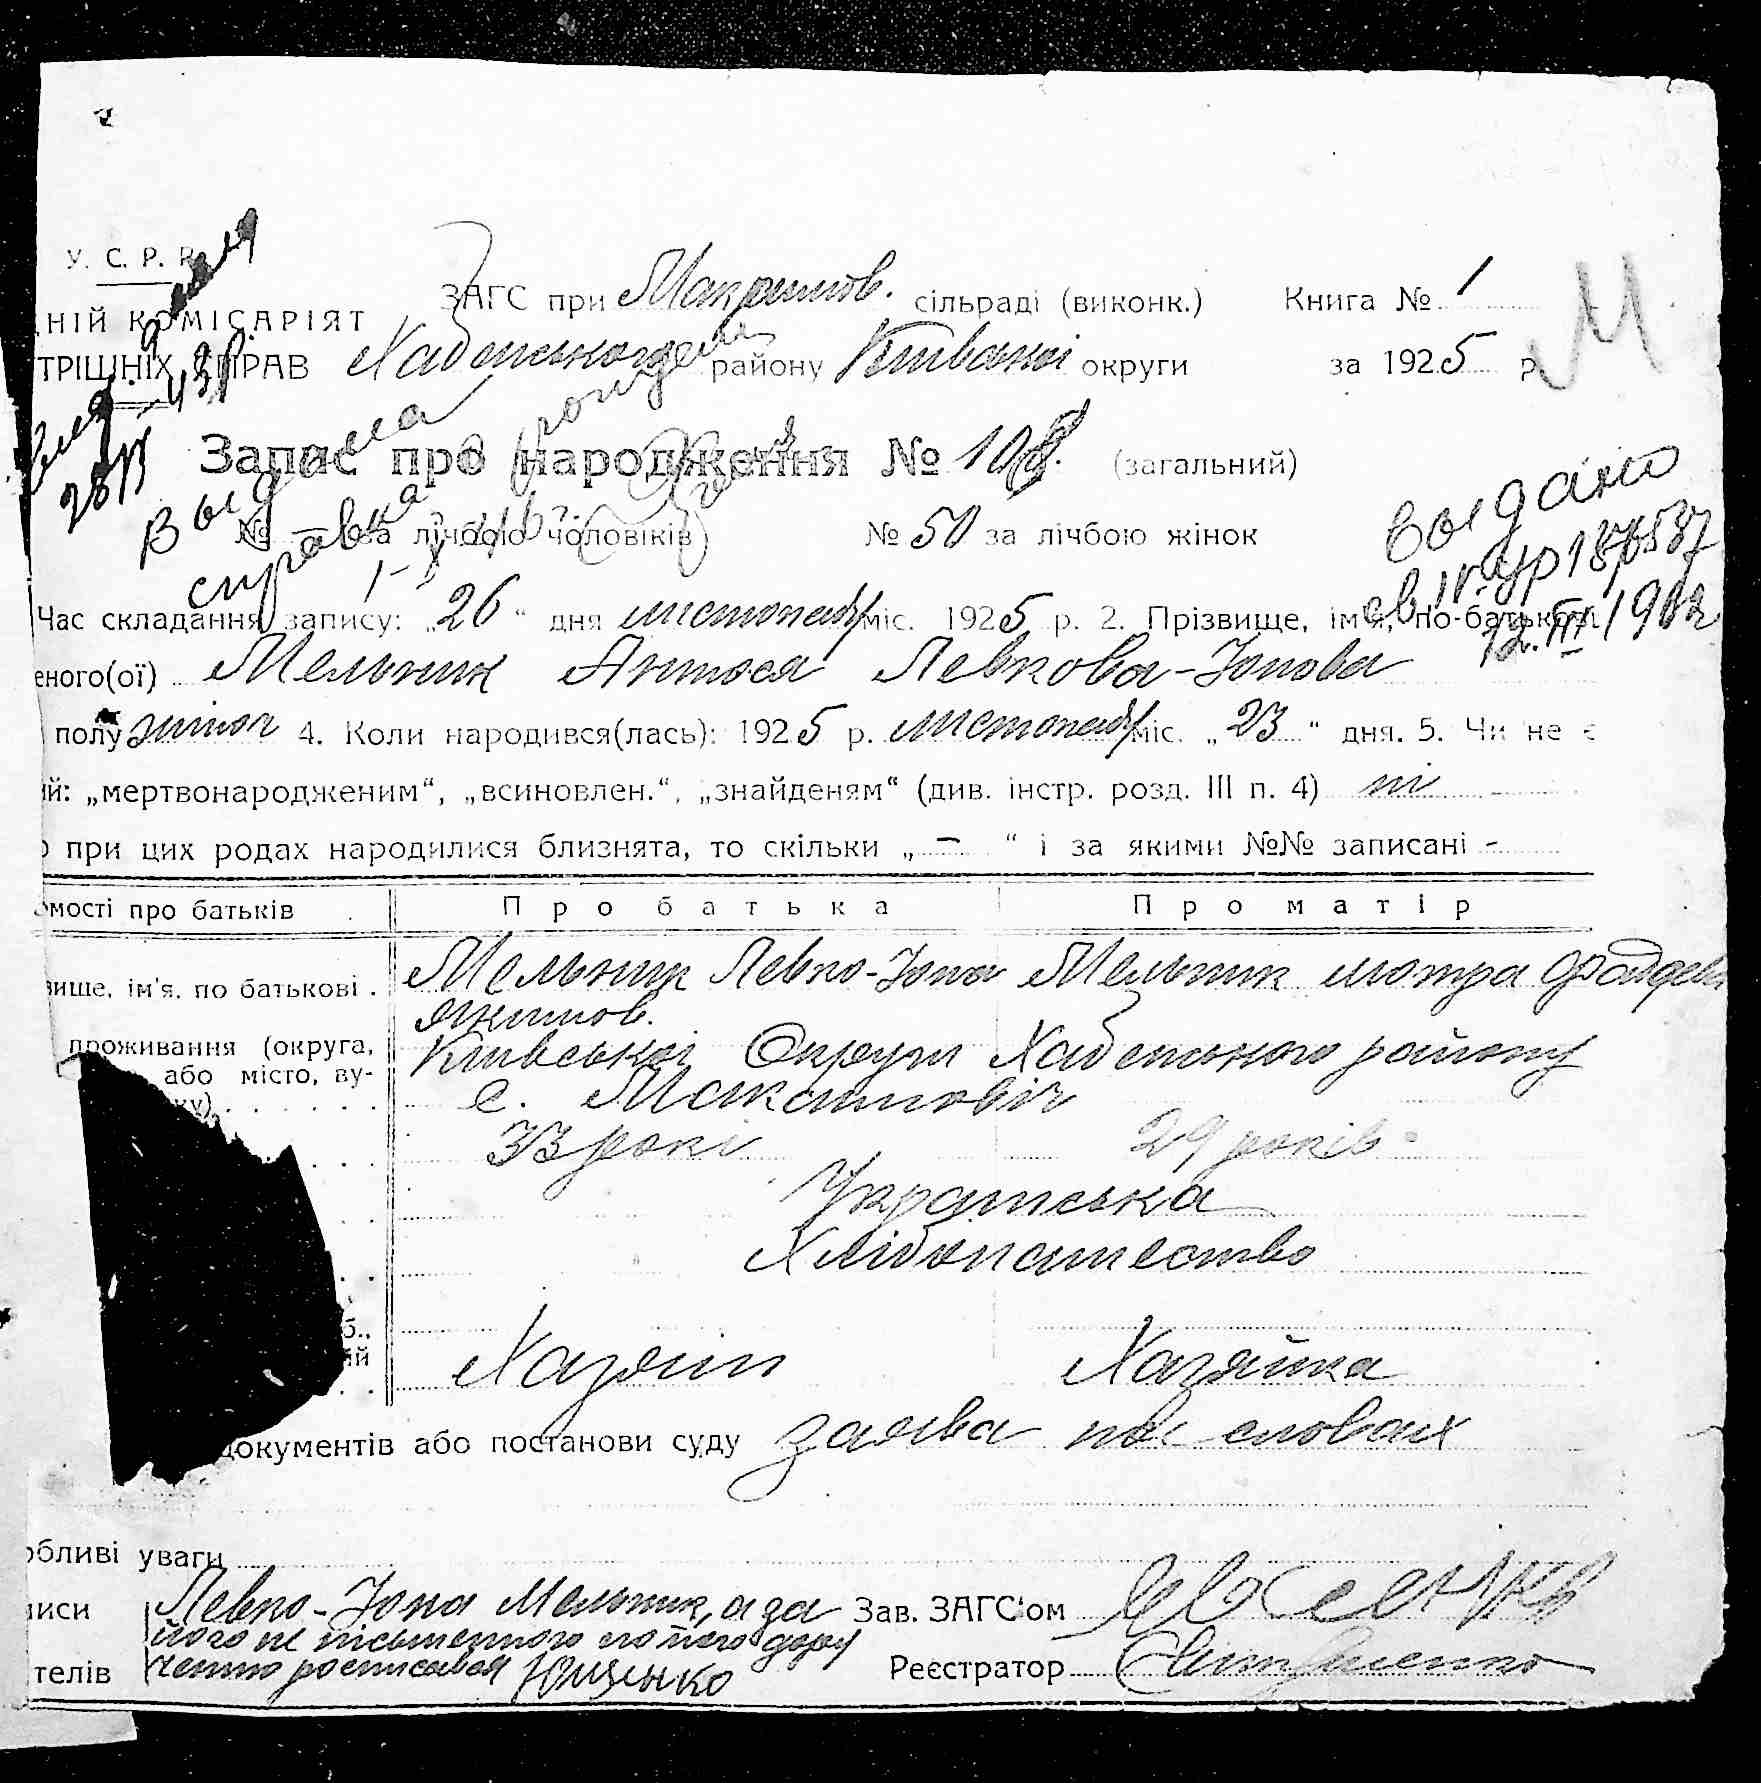 У. С. Р. Р.
ДНІЙ КОМІСАРІЯТ
ТРІШНІХ СПРАВ
ЗАГС при Макримов. сільраді (виконк.) Книга № 1
Хабенського району Київської округи за 1925 р. М
Запис про народження № 108. (загальний)
№ — за лічбою чоловіків № 50 за лічбою жінок
Выдана
справка
выдано
св IV-УР 187537
12. III 1942
Час складання запису: „26“ дня листопаду міс. 1925 р. 2. Прізвище, ім'я, по-батькові
еного(ої) Мельник Антося Левкова-Іонова
полу жіноч 4. Коли народився(лась): 1925 р. листопаду міс. „23“ дня. 5. Чи не є
ий: „мертвонародженим“, „всиновлен.“, „знайденям“ (див. інстр. розд. III п. 4) ні
о при цих родах народилися близнята, то скільки „ — “ і за якими №№ записані -
омості про батьків Про батька Про матір
вище, ім'я, по батькові . Мельник Левко-Іона Мельник мотра
якимов.
проживання (округа, Київської Округи Хабенського району
або місто, ву-
ку) с. Максимовіч
33 рокі 29 років
Українська
Хлібопашество
б.,
ий
Хазяїн Хазяйка
документів або постанови суду заява на словах
обливі уваги
писи Левко-Іона Мельник, а за Зав. ЗАГС'ом
його не письменного по його дору
телів ченню росписався Ющенко Реєстратор